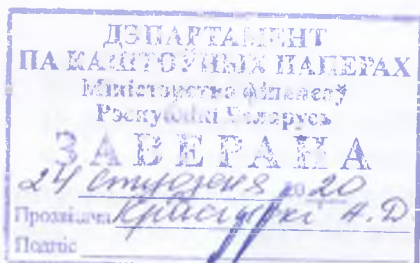 ДЭПАРТАМЕНТ
ПА КАШТОЎНЫХ ПАПЕРАХ
Міністэрства фінансаў
Рэспублікі Беларусь
ЗАВЕРАНА
24 студзеня 2020
Прозвішча А.Д
Подпіс